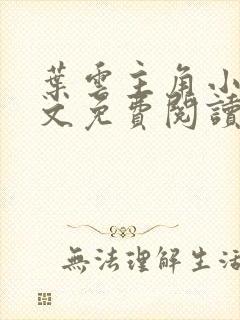 葉雲主角小
文免費閱讀
無法理解生活